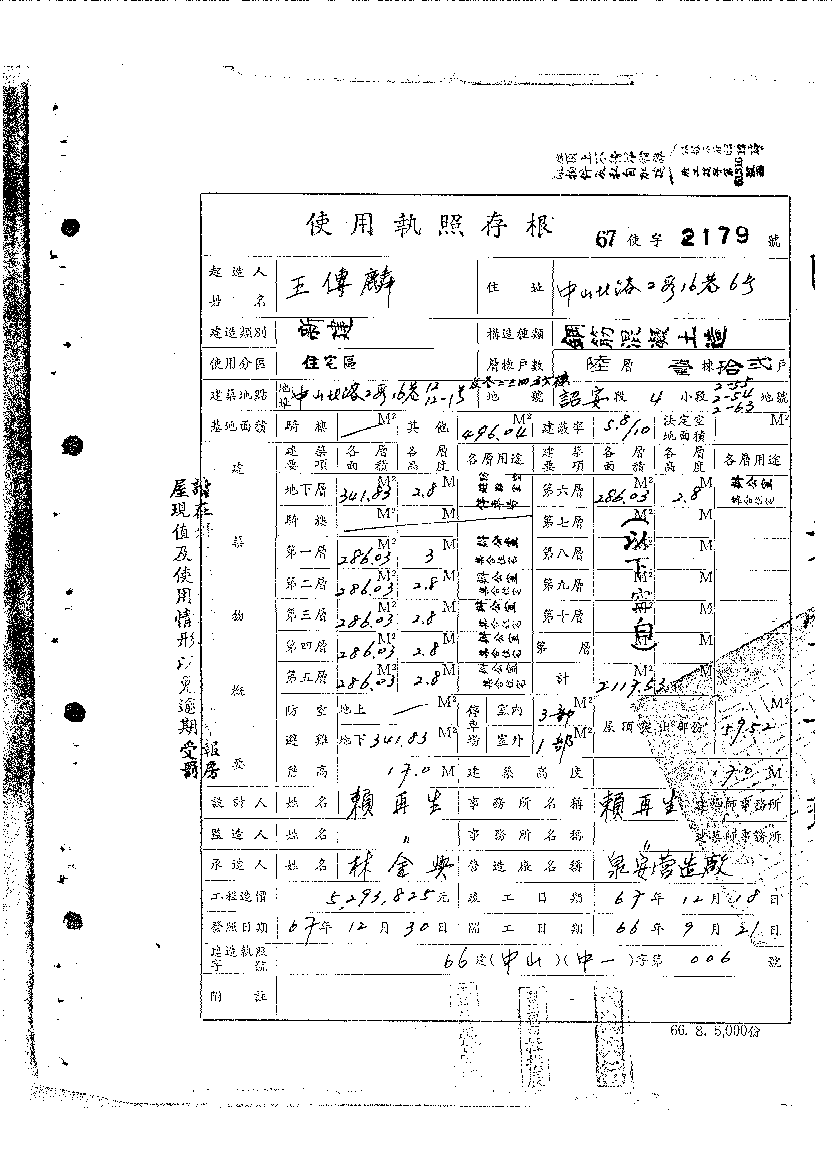 使用執照存根 67 使字 2179 號
起造人姓名 王傳麟 住址 中山北路2段16巷6号
建造類別 新建 構造種類 鋼筋混凝土造
使用分區 住宅區 層棟戶數 陸層 壹棟拾弍戶
建築地點 地 中山北路2段16巷12 12-1号 地號 段 4 小段 2-55 2-54 2-63 地號
基地面積 騎樓 M² 其他 496.04 M² 建蔽率 5.8/10 法定空地面積 M²
建築物概要 建築要項 各層面積 各層高度 各層用途 建築要項 各層面積 各層高度 各層用途
地下層 341.83 M² 2.8 M 第六層 286.03 M² 2.8 M
騎樓 M² M 第七層 M² M
第一層 286.03 M² 3 M 第八層 M² M
第二層 286.03 M² 2.8 M 第九層 M² M
第三層 286.03 M² 2.8 M 第十層 M² M
第四層 286.03 M² 2.8 M 第 層 M² M
第五層 286.03 M² 2.8 M 計 2119.53 M² M
(以下空白)
防空避難 地上 M² 停車場 室內 3部 M² 屋頂突出部份 59.52 M²
地下 341.83 M² 室外 1部 M²
簷高 17.0 M 建築高度 17.0 M
設計人 姓名 賴再生 事務所名稱 賴再生 建築師事務所
監造人 姓名 〃 事務所名稱 〃 建築師事務所
承造人 姓名 林金興 營造廠名稱 泉安营造廠
工程造價 5,293,825元 竣工日期 67年12月18日
發照日期 67年12月30日 開工日期 66年9月21日
建造執照字號 66建(中山)(中一)字第 006 號
附註
66. 8. 5,000份
屋現值及使用情形以免逾期受罰